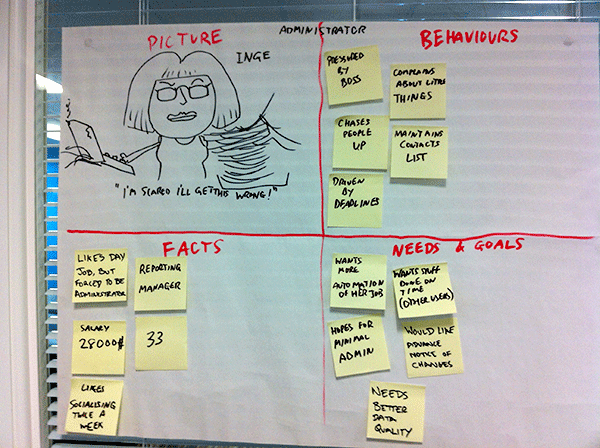 ADMINISTRATOR
PICTURE
INGE
"I'M SCARED I'LL GET THIS WRONG!"
BEHAVIOURS
PRESSURED
BY
BOSS
COMPLAINS
ABOUT LITTLE
THINGS
CHASES
PEOPLE
UP
MAINTAINS
CONTACTS
LIST
DRIVEN
BY
DEADLINES
FACTS
LIKES DAY
JOB, BUT
FORCED TO BE
ADMINISTRATOR
REPORTING
MANAGER
SALARY
28000$
33
LIKES
SOCIALISING
TWICE A
WEEK
NEEDS & GOALS
WANTS
MORE
AUTOMATION
OF HER JOB
WANTS STUFF
DONE ON
TIME
(OTHER USERS)
HOPES FOR
MINIMAL
ADMIN
WOULD LIKE
ADVANCE
NOTICE OF
CHANGES
NEEDS
BETTER
DATA
QUALITY